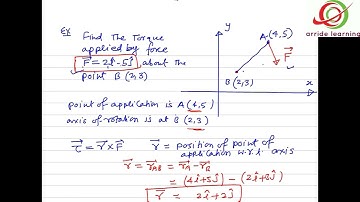 Ex Find The Torque
applied by force
F⃗ = 2î - 5ĵ about the
point B (2,3)
y
A (4,5)
F⃗
B (2,3)
x
arride learning
point of application is A (4,5)
axis of rotation is at B (2,3)
τ⃗ = r⃗ × F⃗ r⃗ = position of point of
application w.r.t. axis
r⃗ = r⃗AB = r⃗A - r⃗B
= (4î+5ĵ) - (2î+3ĵ)
r⃗ = 2î+2ĵ